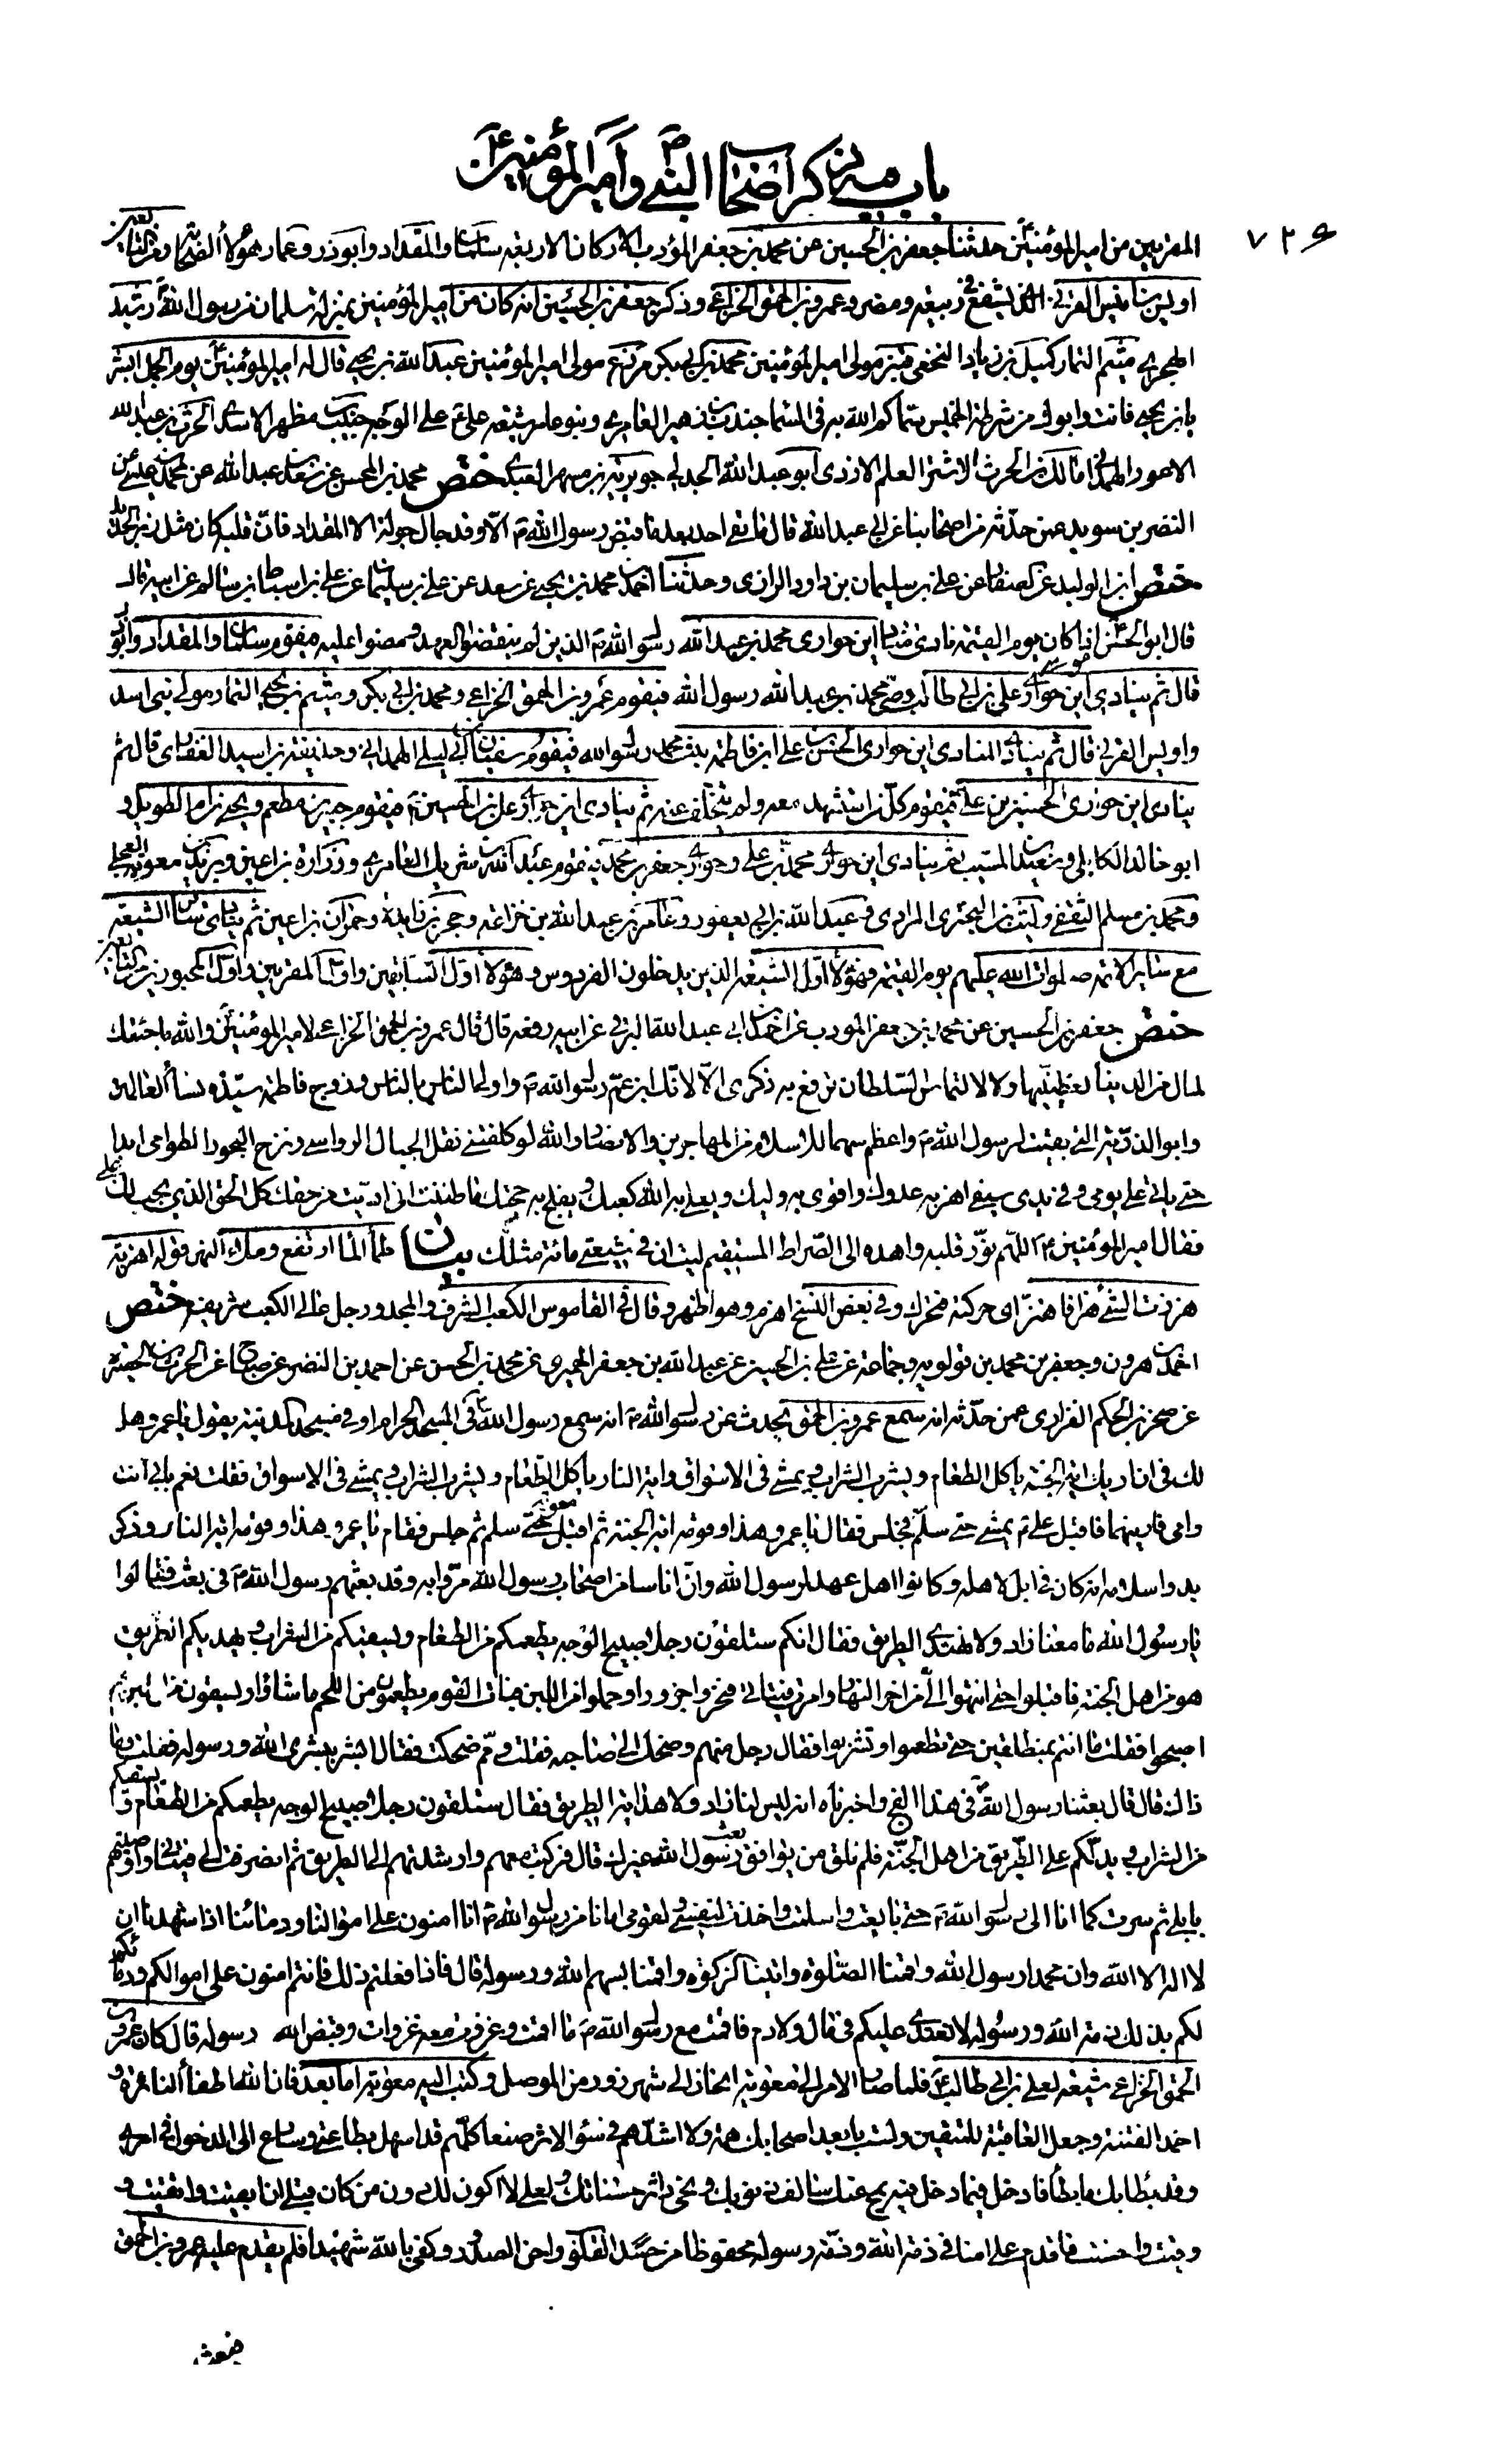 باب فيه ذكر أصحاب النبي وأمير المؤمنين
٧٢٩
المقربين من أمير المؤمنين حدثنا جعفر بن الحسين عن محمد بن جعفر المؤدب الأركان الأربعة سلمان والمقداد وأبوذر وعمار هؤلاء الصحابة ومن التابعين
أويس بن أنيس القرني الذي يشفع في ربيعة ومضر وعمرو بن الحمق الخزاعي وذكر جعفر بن الحسين انه كان من أمير المؤمنين بمنزلة سلمان من رسول الله رشيد
الهجري ميثم التمار كميل بن زياد النخعي قنبر مولى أمير المؤمنين محمد بن أبي بكر مزرع مولى أمير المؤمنين عبد الله بن يحيى قال له أمير المؤمنين يوم الجمل ابشر
يا بن يحيى فانت وابوك من شرطة الخميس سماكم الله به في السماء جندب بن زهير العامري وبنو عامر شيعة علي على الوجه حبيب بن مظهر الاسدي الحرث بن عبد الله
الاعور الهمداني مالك بن الحرث الاشتر العلم الازدي أبو عبد الله الجدلي جويرية بن مسهر العبدي ختص محمد بن الحسن عن سعد بن عبد الله عن محمد بن عيسى عن
النضر بن سويد عمن حدثه من اصحابنا عن أبي عبد الله قال ما بقي احد بعد ما قبض رسول الله الا وقد جال جولة الا المقداد فان قلبه كان مثل زبر الحديد
ختص ابن الوليد عن الصفار عن علي بن سليمان بن داود الرازي وحدثنا احمد بن محمد بن يحيى عن سعد عن علي بن سليمان عن علي بن اسباط بن سالم عن ابيه قال
قال ابو الحسن اذا كان يوم القيمة نادى مناد اين حواري محمد بن عبد الله رسول الله الذين لم ينقضوا العهد ومضوا عليه فيقوم سلمان والمقداد وأبوذر
قال ثم ينادي اين حواري علي بن أبي طالب وصي محمد بن عبد الله رسول الله فيقوم عمرو بن الحمق الخزاعي ومحمد بن أبي بكر وميثم بن يحيى التمار مولى بني اسد
واويس القرني قال ثم ينادي المنادي اين حواري الحسن بن علي ابن فاطمة بنت محمد رسول الله فيقوم سفيان بن أبي ليلى الهمداني وحذيفة بن اسيد الغفاري قال ثم
ينادي اين حواري الحسين بن علي فيقوم كل من استشهد معه ولم يتخلف عنه ثم ينادي اين حواري علي بن الحسين فيقوم جبير بن مطعم ويحيى بن ام الطويل و
ابو خالد الكابلي وسعيد بن المسيب ثم ينادي اين حواري محمد بن علي وحواري جعفر بن محمد فيقوم عبد الله بن شريك العامري وزرارة بن اعين وبريد بن معوية العجلي
ومحمد بن مسلم الثقفي وليث بن البختري المرادي وعبد الله بن أبي يعفور وعامر بن عبد الله بن خزاعة وحجر بن زائدة وحمران بن اعين ثم ينادي سائر الشيعة
مع سائر الائمة صلوات الله عليهم يوم القيمة فهؤلاء أول الشيعة الذين يدخلون الفردوس وهؤلاء أول السابقين وأول المقربين وأول المحبورين من التابعين
ختص جعفر بن الحسين عن محمد بن جعفر المؤدب عن احمد بن أبي عبد الله البرقي عن ابيه رفعه قال قال عمرو بن الحمق الخزاعي لامير المؤمنين والله ما جئتك
لمال من الدنيا تعطينيها ولا لالتماس السلطان ترفع به ذكري الا لانك ابن عم رسول الله واولى الناس بالناس وزوج فاطمة سيدة نساء العالمين
وابو الذرية التي بقيت لرسول الله واعظم سهما للاسلام من المهاجرين والانصار والله لو كلفتني نقل الجبال الرواسي ونزح البحور الطوامي ابدا
حتى يأتي علي يومي وفي يدي سيفي اهز به عدوك واقوي به وليك ويعلي به الله كعبك ويفلج به حجتك ما ظننت اني اديت من حقك كل الحق الذي يجب لك علي
فقال امير المؤمنين اللهم نور قلبه واهده الى الصراط المستقيم ليت ان في شيعتي مائة مثلك بيان طما الماء ارتفع وملأ النهر قوله اهز به
هززت الشيء هزا فاهتز اي حركته فتحرك وفي بعض النسخ اهزم وهو اظهر وقال في القاموس الكعب الشرف والمجد ورجل عالي الكعب شريف ختص
احمد بن هرون وجعفر بن محمد بن قولويه وجماعة عن علي بن الحسين عن عبد الله بن جعفر الحميري عن محمد بن الحسن عن احمد بن النضر عن صباح عن الحرث بن الحصيرة
عن صخر بن الحكم الفزاري عمن حدثه انه سمع عمرو بن الحمق يحدث عن رسول الله انه سمع رسول الله في المسجد الحرام او في مسجد المدينة يقول يا عمرو هل
لك في ان اريك اية الجنة يأكل الطعام ويشرب الشراب ويمشي في الاسواق واية النار يأكل الطعام ويشرب الشراب ويمشي في الاسواق فقلت نعم بأبي انت
وامي فارينهما فاقبل علي يمشي حتى سلم فجلس فقال يا عمرو هذا وقومه اية الجنة ثم اقبل معوية حتى سلم ثم جلس فقام يا عمرو هذا وقومه اية النار وذكر
بدو اسلامه انه كان في ابل لاهله وكانوا اهل عهد لرسول الله وان اناسا من اصحاب رسول الله مروا به وقد بعثهم رسول الله في بعث فقالوا
يا رسول الله ما معنا زاد ولا نهتدي الطريق فقال انكم ستلقون رجلا صبيح الوجه يطعمكم من الطعام ويسقيكم من الشراب ويهديكم الطريق
هو من اهل الجنة فاقبلوا حتى انتهوا الي من اخر النهار وامرت فتياني فنحروا جزورا وحملوا من اللبن فبات القوم يطعمون من اللحم ما شاؤا ويسقون من اللبن ثم
اصبحوا فقلت ما انتم بمنطلقين حتى تطعموا او تشربوا فقال رجل منهم وضحك الى صاحبه فقلت ومم ضحكت فقال ابشر ببشرى الله ورسوله فقلت وما
ذاك قال قال بعثنا رسول الله في هذا الفج واخبرناه انه ليس لنا زاد ولا هداية الطريق فقال ستلقون رجلا صبيح الوجه يطعمكم من الطعام ويسقيكم
من الشراب ويدلكم على الطريق من اهل الجنة فلم نلق من يوافق نعت رسول الله غيرك قال فركبت معهم وارشدتهم الى الطريق ثم انصرفت الى فتياني واوصيتهم
بابلي ثم سرت كما انا الى رسول الله حتى بايعت واسلمت واخذت لنفسي ولقومي امانا من رسول الله انا امنون على اموالنا ودمائنا اذا شهدنا ان
لا اله الا الله وان محمدا رسول الله واقمنا الصلوة واتينا الزكوة واقمنا بسهم الله ورسوله قال فاذا فعلتم ذلك فانتم امنون على اموالكم ودمائكم
لكم بذلك ذمة الله ورسوله لا نعتدي عليكم في مال ولا دم فاقمت مع رسول الله ما اقمت وغزوت معه غزوات وقبض الله رسوله قال كان عمرو بن
الحمق الخزاعي شيعة لعلي بن أبي طالب فلما صار الامر الى معوية انحاز الى شهرزور من الموصل وكتب اليه معوية اما بعد فان الله اطفأ النائرة و
اخمد الفتنة وجعل العاقبة للمتقين ولست بابعد اصحابك همة ولا اشدهم في سوء الاثر صنعا كلهم قد اسهل بطاعتي وسارع الى الدخول في امري
وقد بطأ بك ما بطأ فادخل فيما دخل فيه يمح عنك سالف ذنوبك ويحي داثر حسناتك ولعلي لا اكون لك دون من كان قبلي ان ابقيت واتقيت و
وفيت واحسنت فاقدم علي امنا في ذمة الله وذمة رسوله محفوظا من حسد القلوب واحن الصدور وكفى بالله شهيدا فلم يقدم عليه عمرو بن الحمق
فبعث